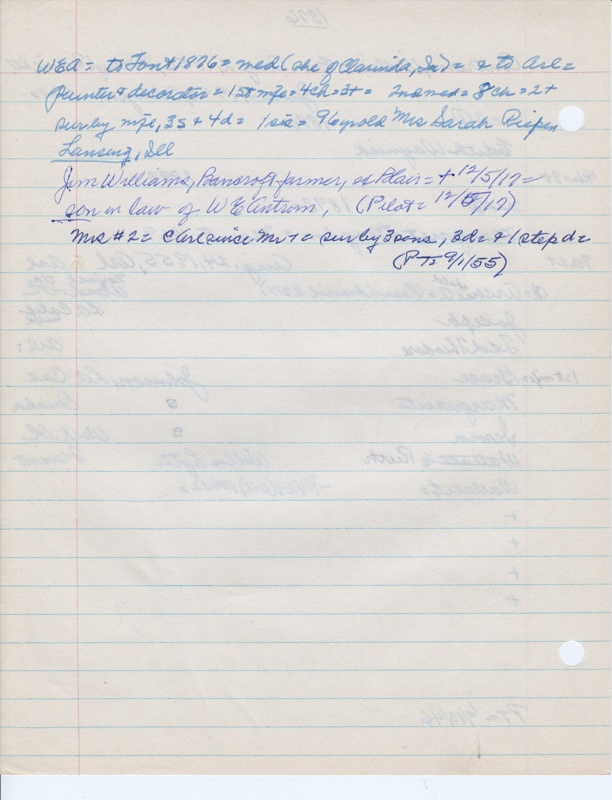 WEA = to Font 1876 = med (che of Clarinda, Ia) = & to Arl =
painter & decorator = 1st mfe = 4ch = 3+ = 2nd med = 8ch = 2+
sur by mfe, 3s & 4d = 1 sis = 96 yr old Mrs Sarah Riepen
Lansing, Ill
Jim Williams, Bancroft farmer, ex Blair = + 12/5/17 =
son in law of W E Antrim, (Pilot = 12/ /17)
Mrs #2 = C Arl since Mr + = sur by 3 sons, 3d = & 1 step d =
(PT = 9/1/55)